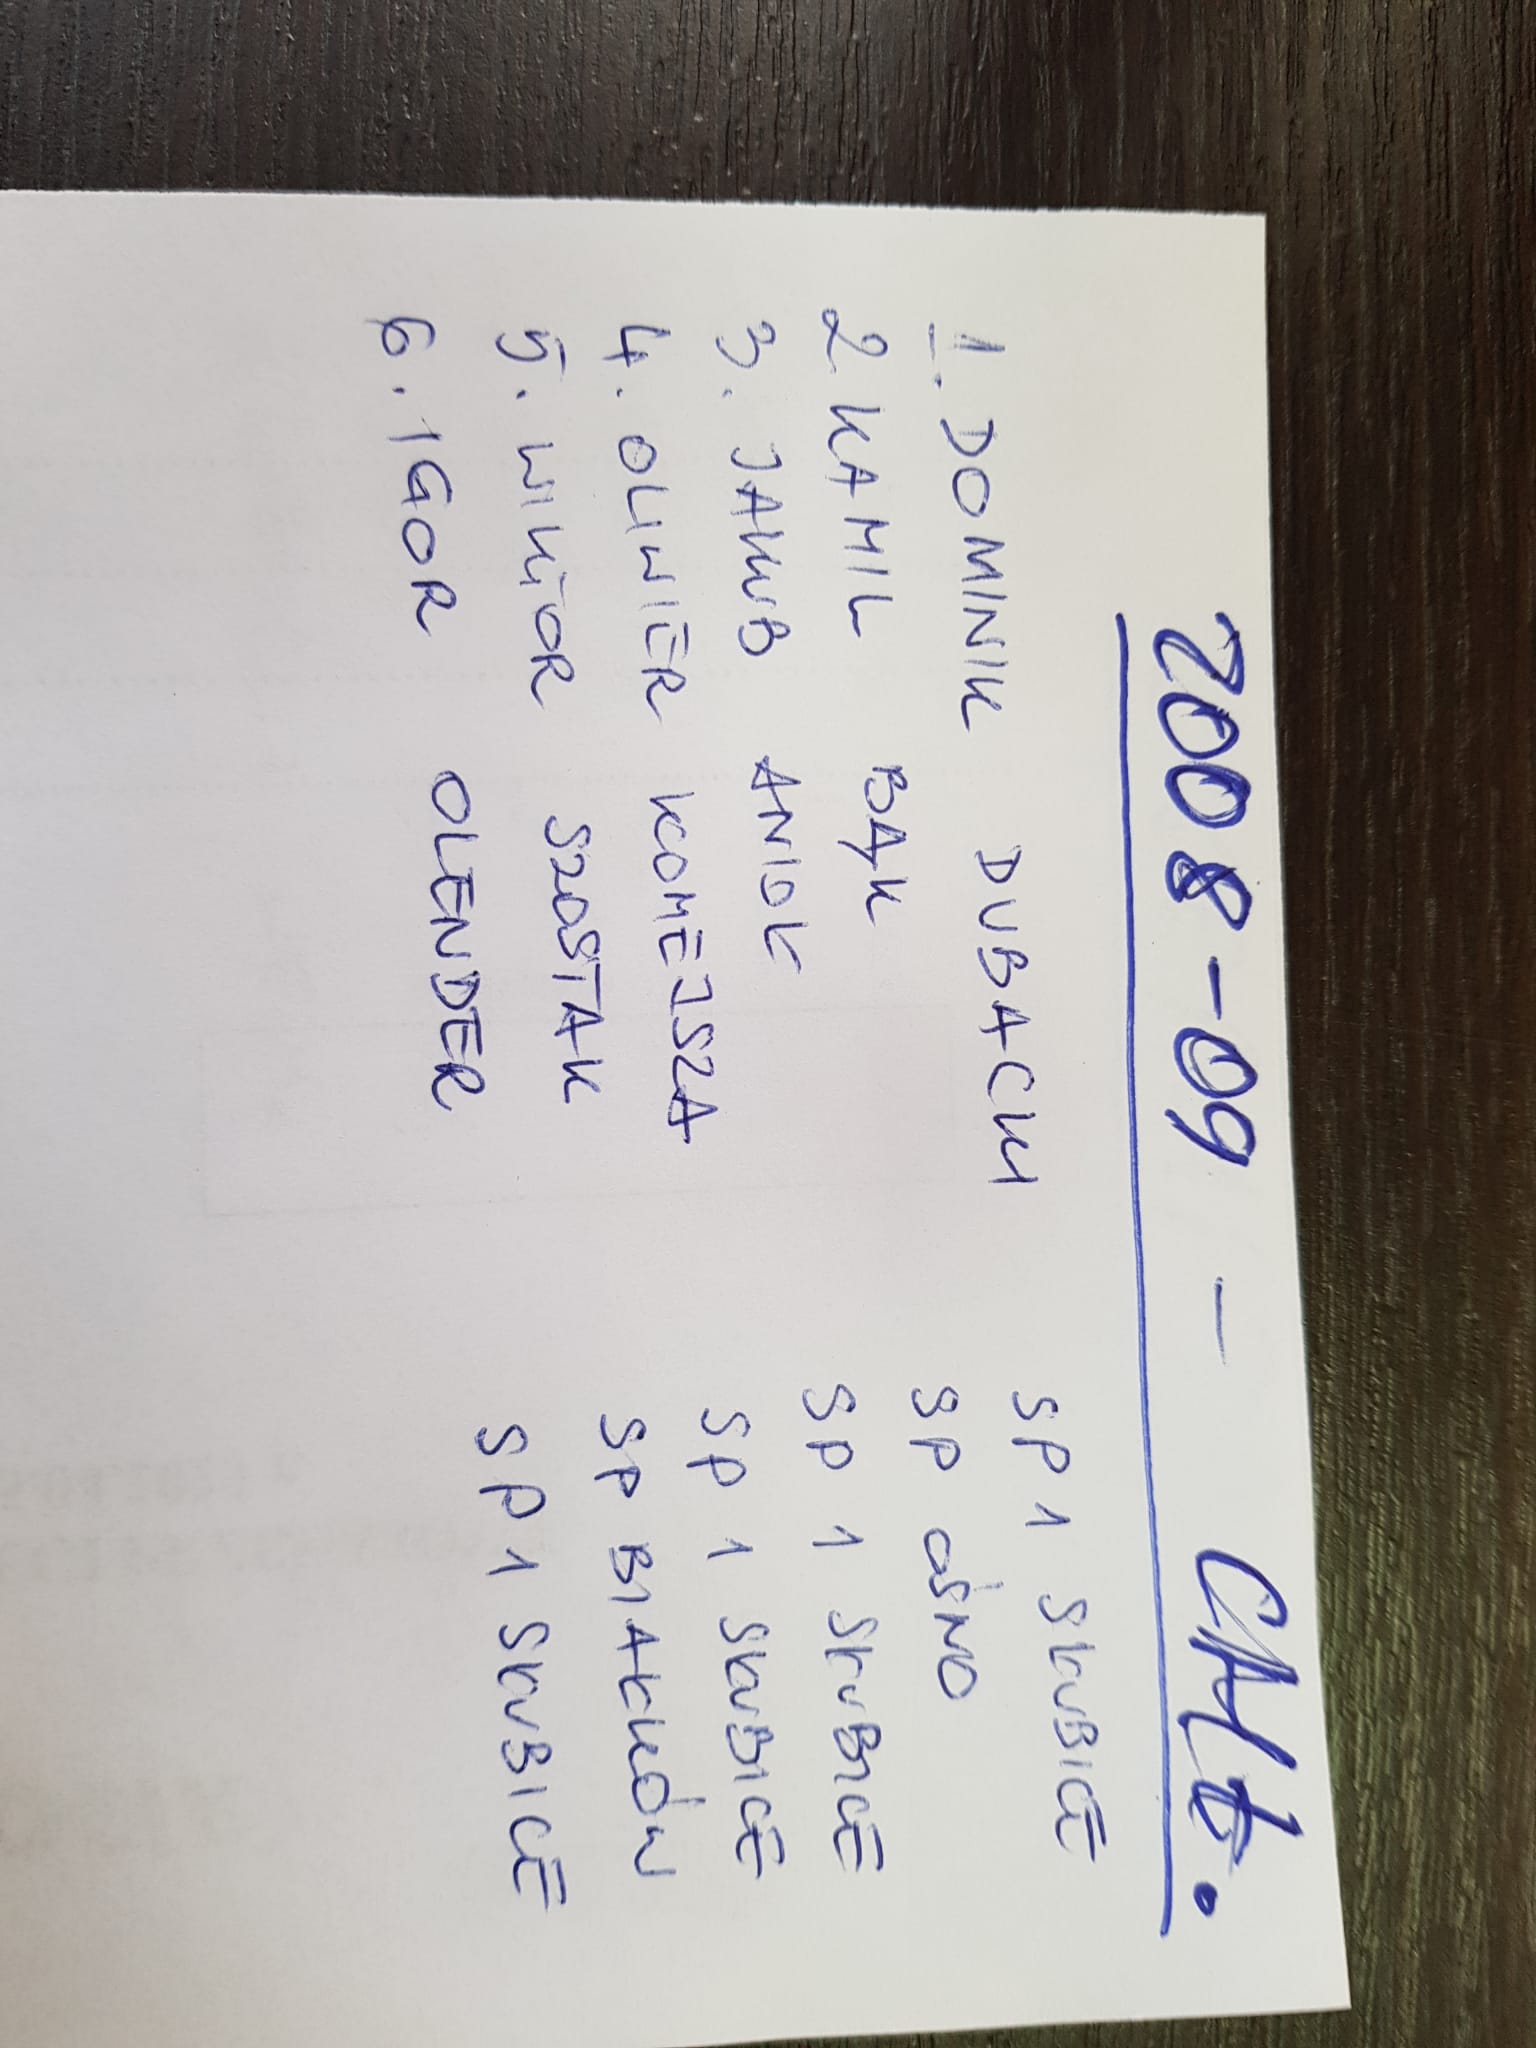 2008-09 - CHŁ.
1. DOMINIK DUBACKI SP 1 SŁUBICE
2 KAMIL BĄK SP OŚNO
3. JAKUB ANIOŁ SP 1 SŁUBICE
4. OLIWIER KOMEJSZA SP 1 SŁUBICE
5. WIKTOR SZOSTAK SP BIAŁKÓW
6. IGOR OLENDER SP 1 SŁUBICE